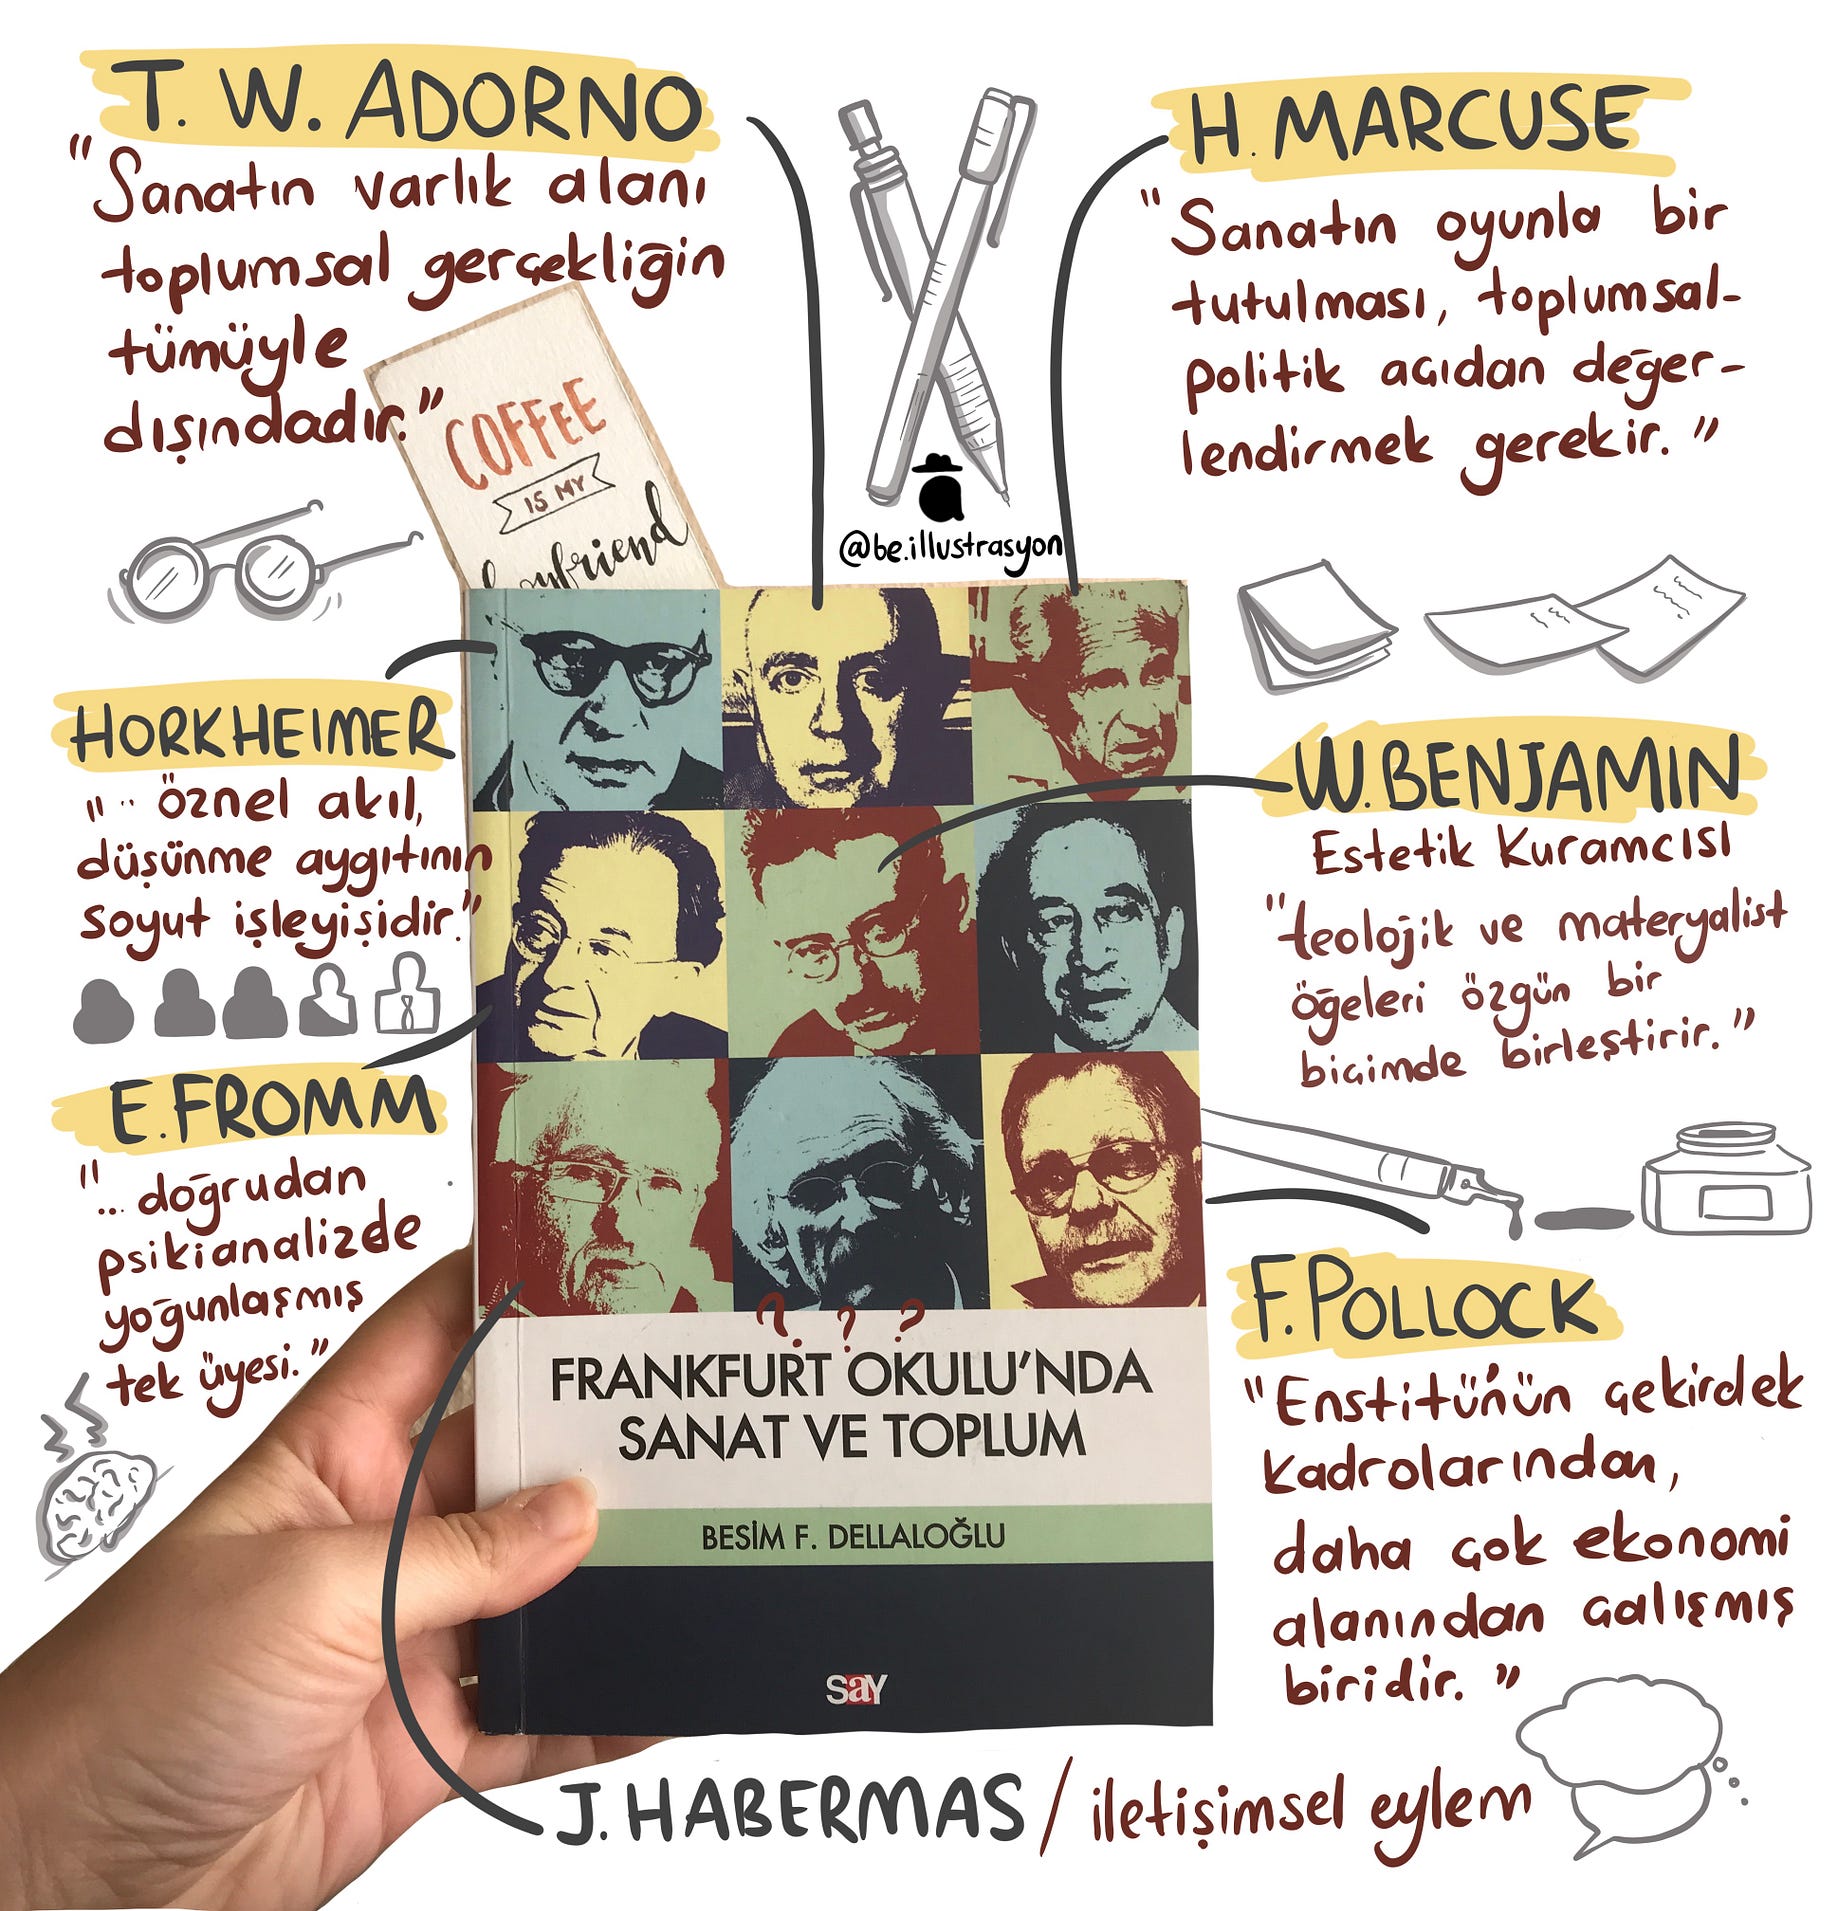 T. W. ADORNO
"Sanatın varlık alanı
toplumsal gerçekliğin
tümüyle
dışındadır."
H. MARCUSE
"Sanatın oyunla bir
tutulması, toplumsal-
politik açıdan değer-
lendirmek gerekir."
COFFEE
IS MY
boyfriend
@be.illustrasyon
HORKHEIMER
"... öznel akıl,
düşünme aygıtının
soyut işleyişidir."
W. BENJAMIN
Estetik Kuramcısı
"teolojik ve materyalist
öğeleri özgün bir
biçimde birleştirir."
E. FROMM
"... doğrudan
psikianalizde
yoğunlaşmış
tek üyesi."
F. POLLOCK
"Enstitü'nün çekirdek
kadrolarından,
daha çok ekonomi
alanından çalışmış
biridir."
? ? ?
FRANKFURT OKULU'NDA
SANAT VE TOPLUM
BESİM F. DELLALOĞLU
SAY
J. HABERMAS / iletişimsel eylem